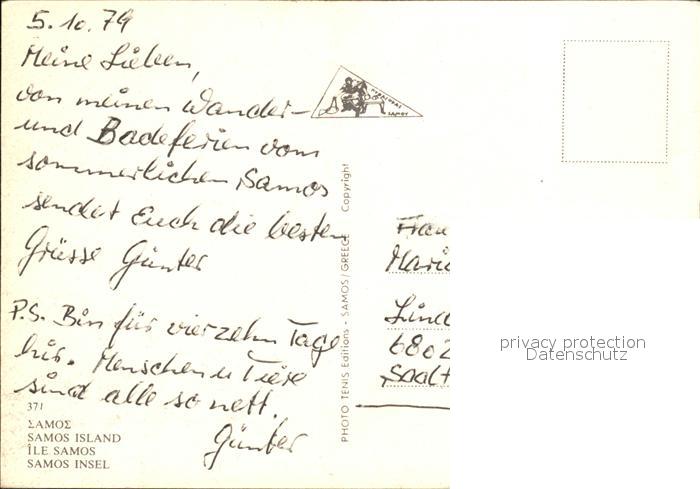 5.10.79
Meine Lieben,
von meinen Wander-
und Badeferien vom
sommerlichen Samos
sendet Euch die besten
Grüsse Günter
P.S. Bin für vierzehn Tage
hier. Menschen u Tiere
sind alle so nett.
Günter
371
ΣΑΜΟΣ
SAMOS ISLAND
ÎLE SAMOS
SAMOS INSEL
PHOTO TENIS Editions - SAMOS/GREECE Copyright
SAMOS
Frau
6802
privacy protection
Datenschutz